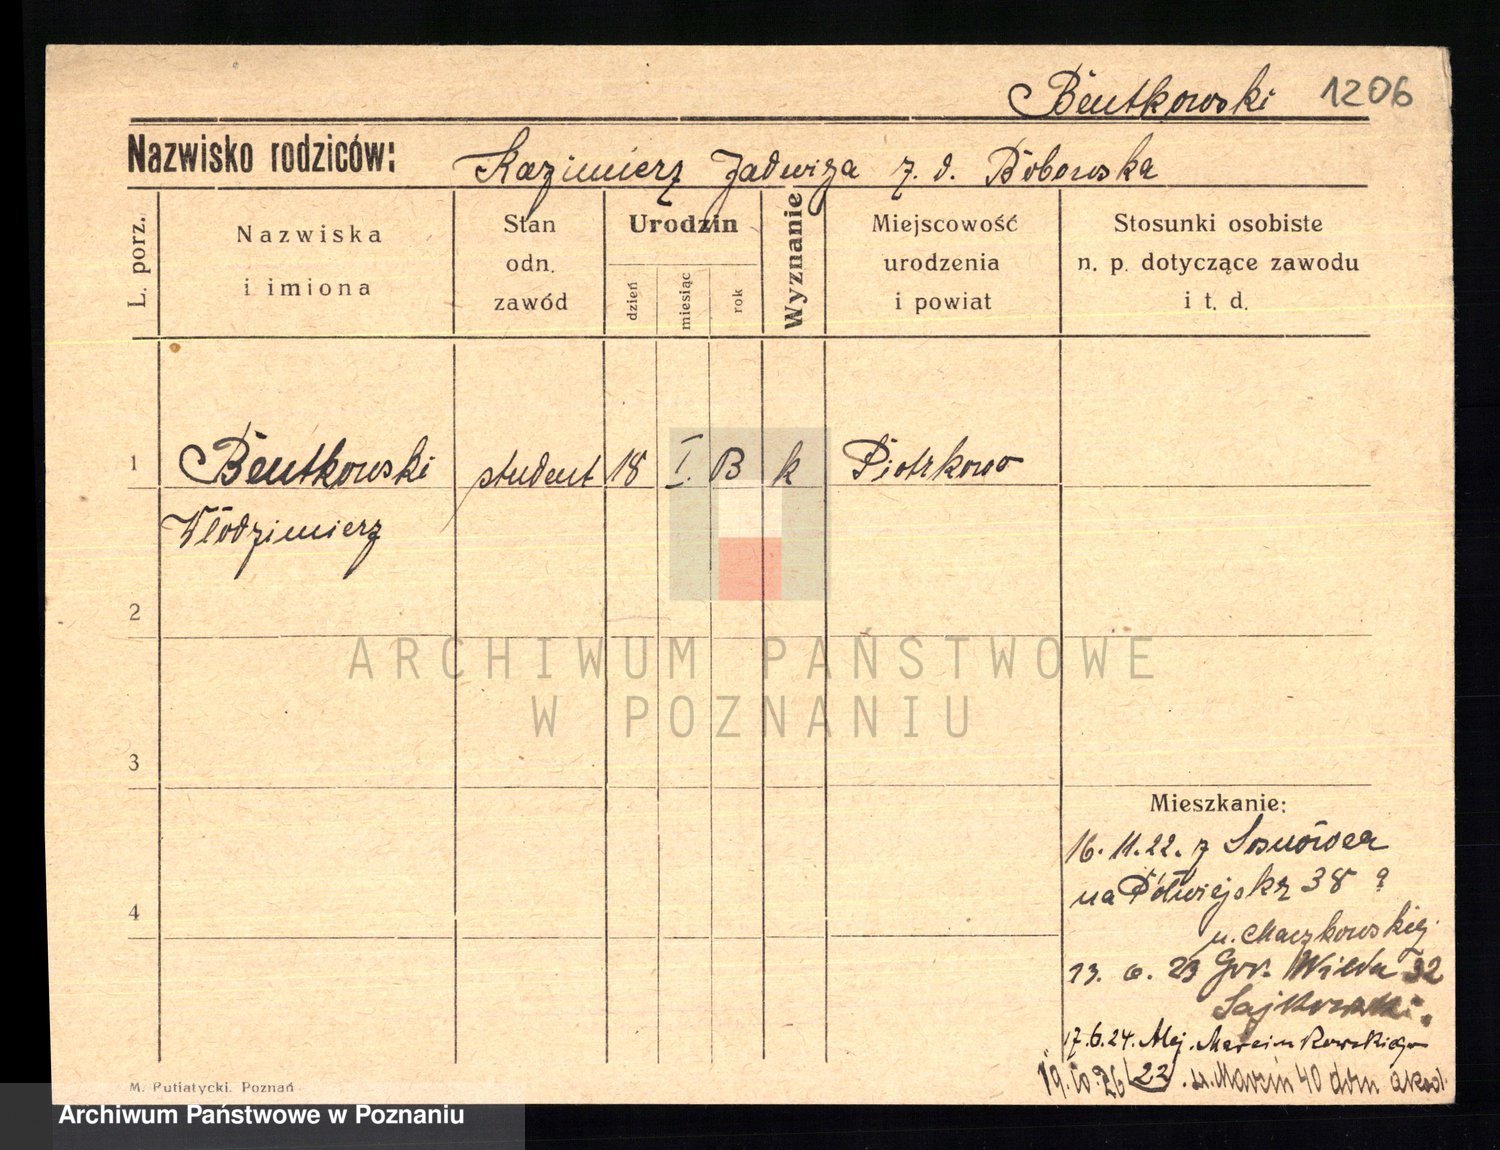 Bentkowski 1206
Nazwisko rodziców: Kazimierz Jadwiga z. d. Boborska
L. porz.
Nazwiska
i imiona
Stan
odn.
zawód
Urodzin
dzień
miesiąc
rok
Wyznanie
Miejscowość
urodzenia
i powiat
Stosunki osobiste
n. p. dotyczące zawodu
i t. d.
1 Bentkowski student 18 I. k Piotrkowo
Włodzimierz
2
ARCHIWUM PAŃSTWOWE
W POZNANIU
3
Mieszkanie:
16. 11. 22. z Sosnowca
na Półwiejską 38
4
u. Maczkowskiej
13. 6. 23 Gór. Wilda 32
17. 6. 24. Alej. Marcinkowskiego
22. 19. 10. 26 Marcin 40 dom akad.
M. Putiatycki. Poznań
Archiwum Państwowe w Poznaniu